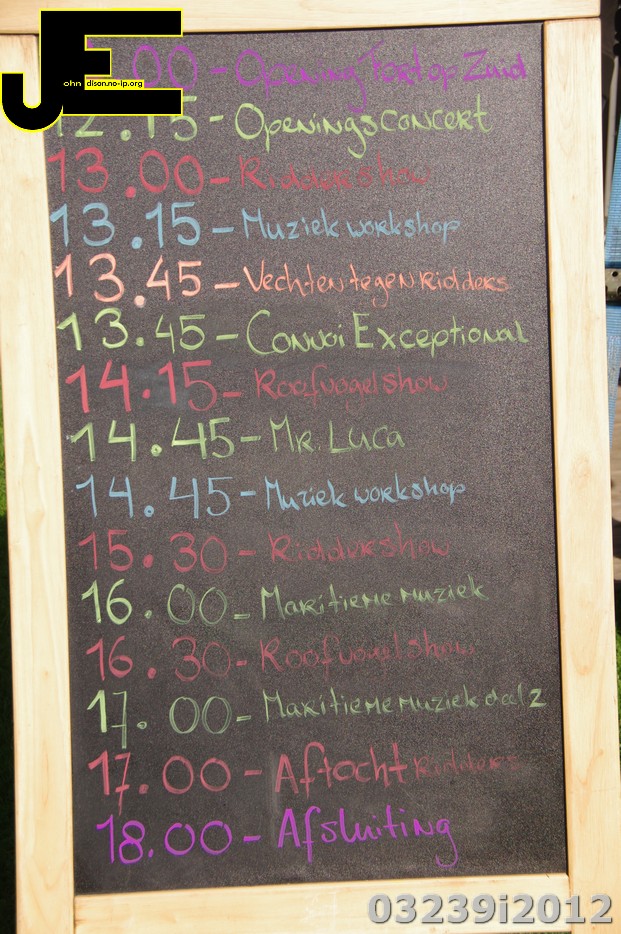 JE
ohn dison.no-ip.org
00 - Opening Fort op Zuid
12.15 - Openingsconcert
13.00 - Riddershow
13.15 - Muziek workshop
13.45 - Vechten tegen Ridders
13.45 - Convoi Exceptional
14.15 - Roofvogelshow
14.45 - Mr. Luca
14.45 - Muziek workshop
15.30 - Riddershow
16.00 - Maritieme muziek
16.30 - Roofvogelshow
17.00 - Maritieme muziek deel 2
17.00 - Aftocht Ridders
18.00 - Afsluiting
03239i2012